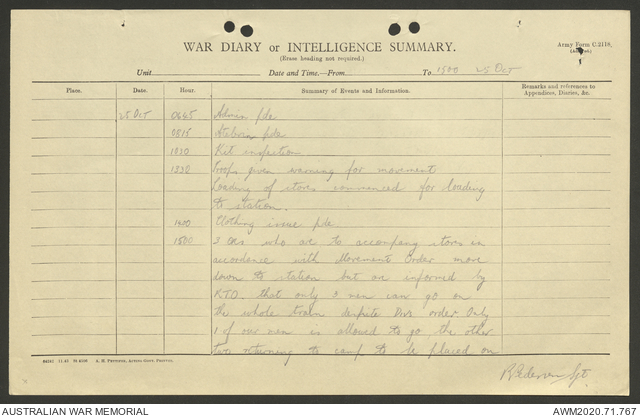 WAR DIARY or INTELLIGENCE SUMMARY.
(Erase heading not required.)
Army Form C.2118.
Unit Date and Time.—From To 1500 25 Oct
Place. Date. Hour. Summary of Events and Information. Remarks and references to Appendices, Diaries, &c.
25 Oct 0645 Admin pde
0815 pde
1030 Kit inspection
1330 Troops given warning for movement
Loading of stores commenced for loading
to station.
1400 Clothing issue pde
1500 3 ORs who are to accompany stores in
accordance with Movement Order move
down to station but are informed by
RTO. that only 3 men can go on
the whole train despite Div order Only
1 of our men is allowed to go the other
two returning to camp to be placed on
Sgt
AUSTRALIAN WAR MEMORIAL
AWM2020.71.767